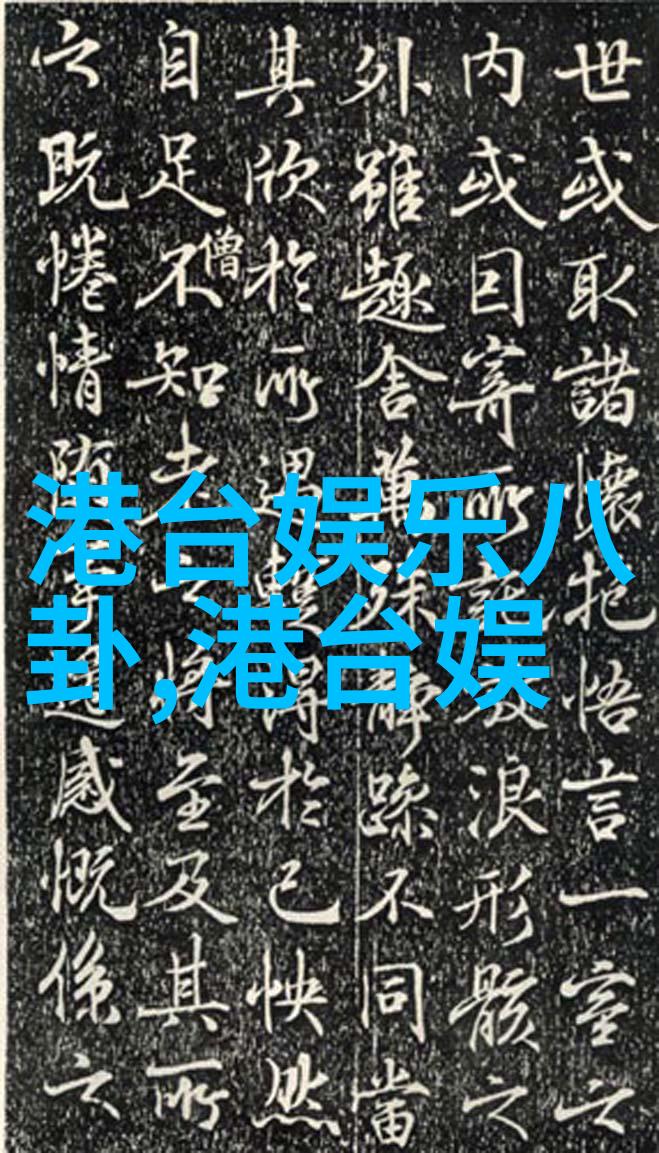 世或取諸懷抱悟言一室之
内或因寄所託放浪形骸之
外雖趣舍萬殊静躁不同當
其欣於所遇蹔得於己怏然
自足不知老之將至及其所
僧
之既惓情隨事遷感慨係之
港台娱乐八
卦,港台娱